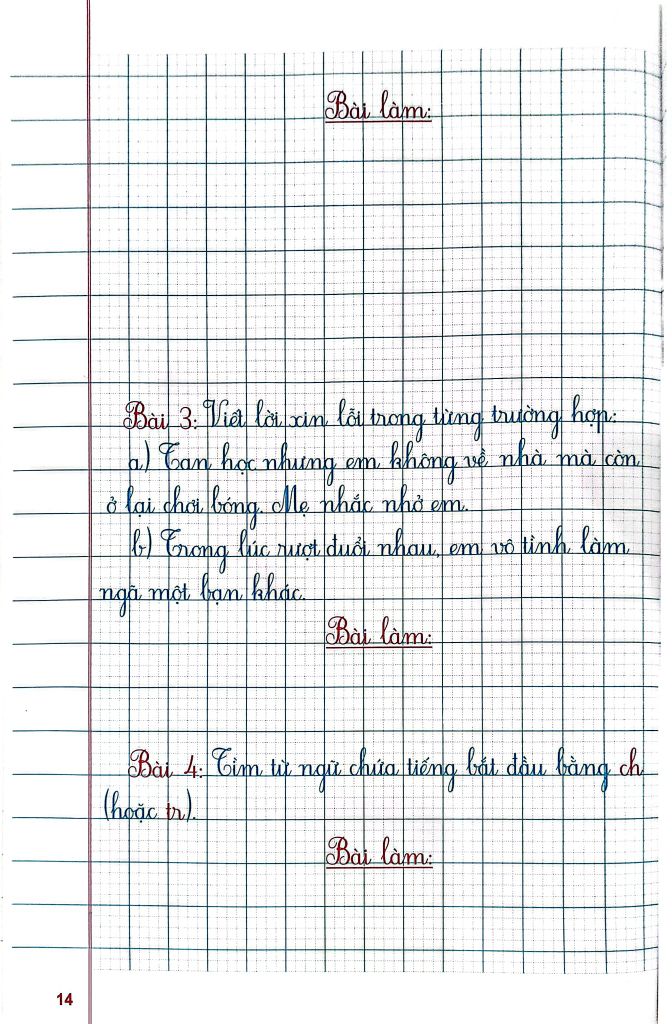 Bài làm:
Bài 3: Viết lời xin lỗi trong từng trường hợp:
a) Tan học nhưng em không về nhà mà còn
ở lại chơi bóng. Mẹ nhắc nhở em.
b) Trong lúc rượt đuổi nhau, em vô tình làm
ngã một bạn khác.
Bài làm:
Bài 4: Tìm từ ngữ chứa tiếng bắt đầu bằng ch
(hoặc tr).
Bài làm:
14